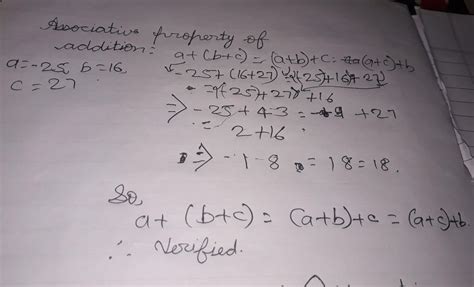 Associative property of
addition:
a + (b+c) = (a+b)+c = (a+c)+b
a=-25, b=16,
c = 27
-25+(16+27) = (-25)+16+27
= (-25)+27)+16
⇒ -25+43 = +27
= 2+16
⇒ -1-8 = 18=18.
So,
a+ (b+c) = (a+b)+c = (a+c)+b.
∴ Verified.